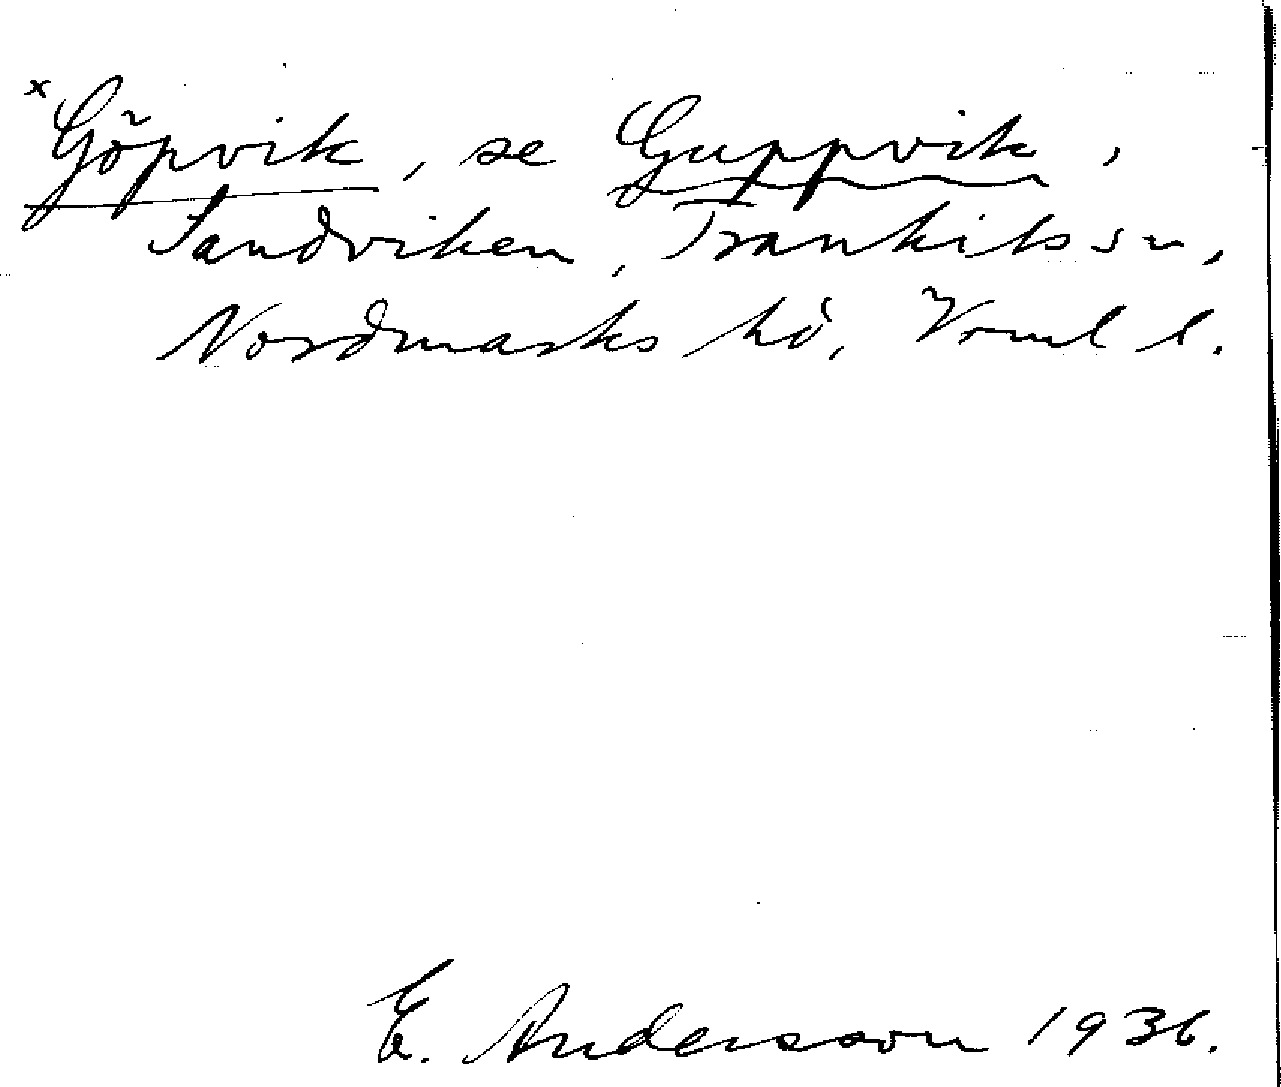 ˣGöpvik, se Guppvik,
Sandviken, Trankils sn,
Nordmarks hd, Vrml l.
E. Andersson 1936.